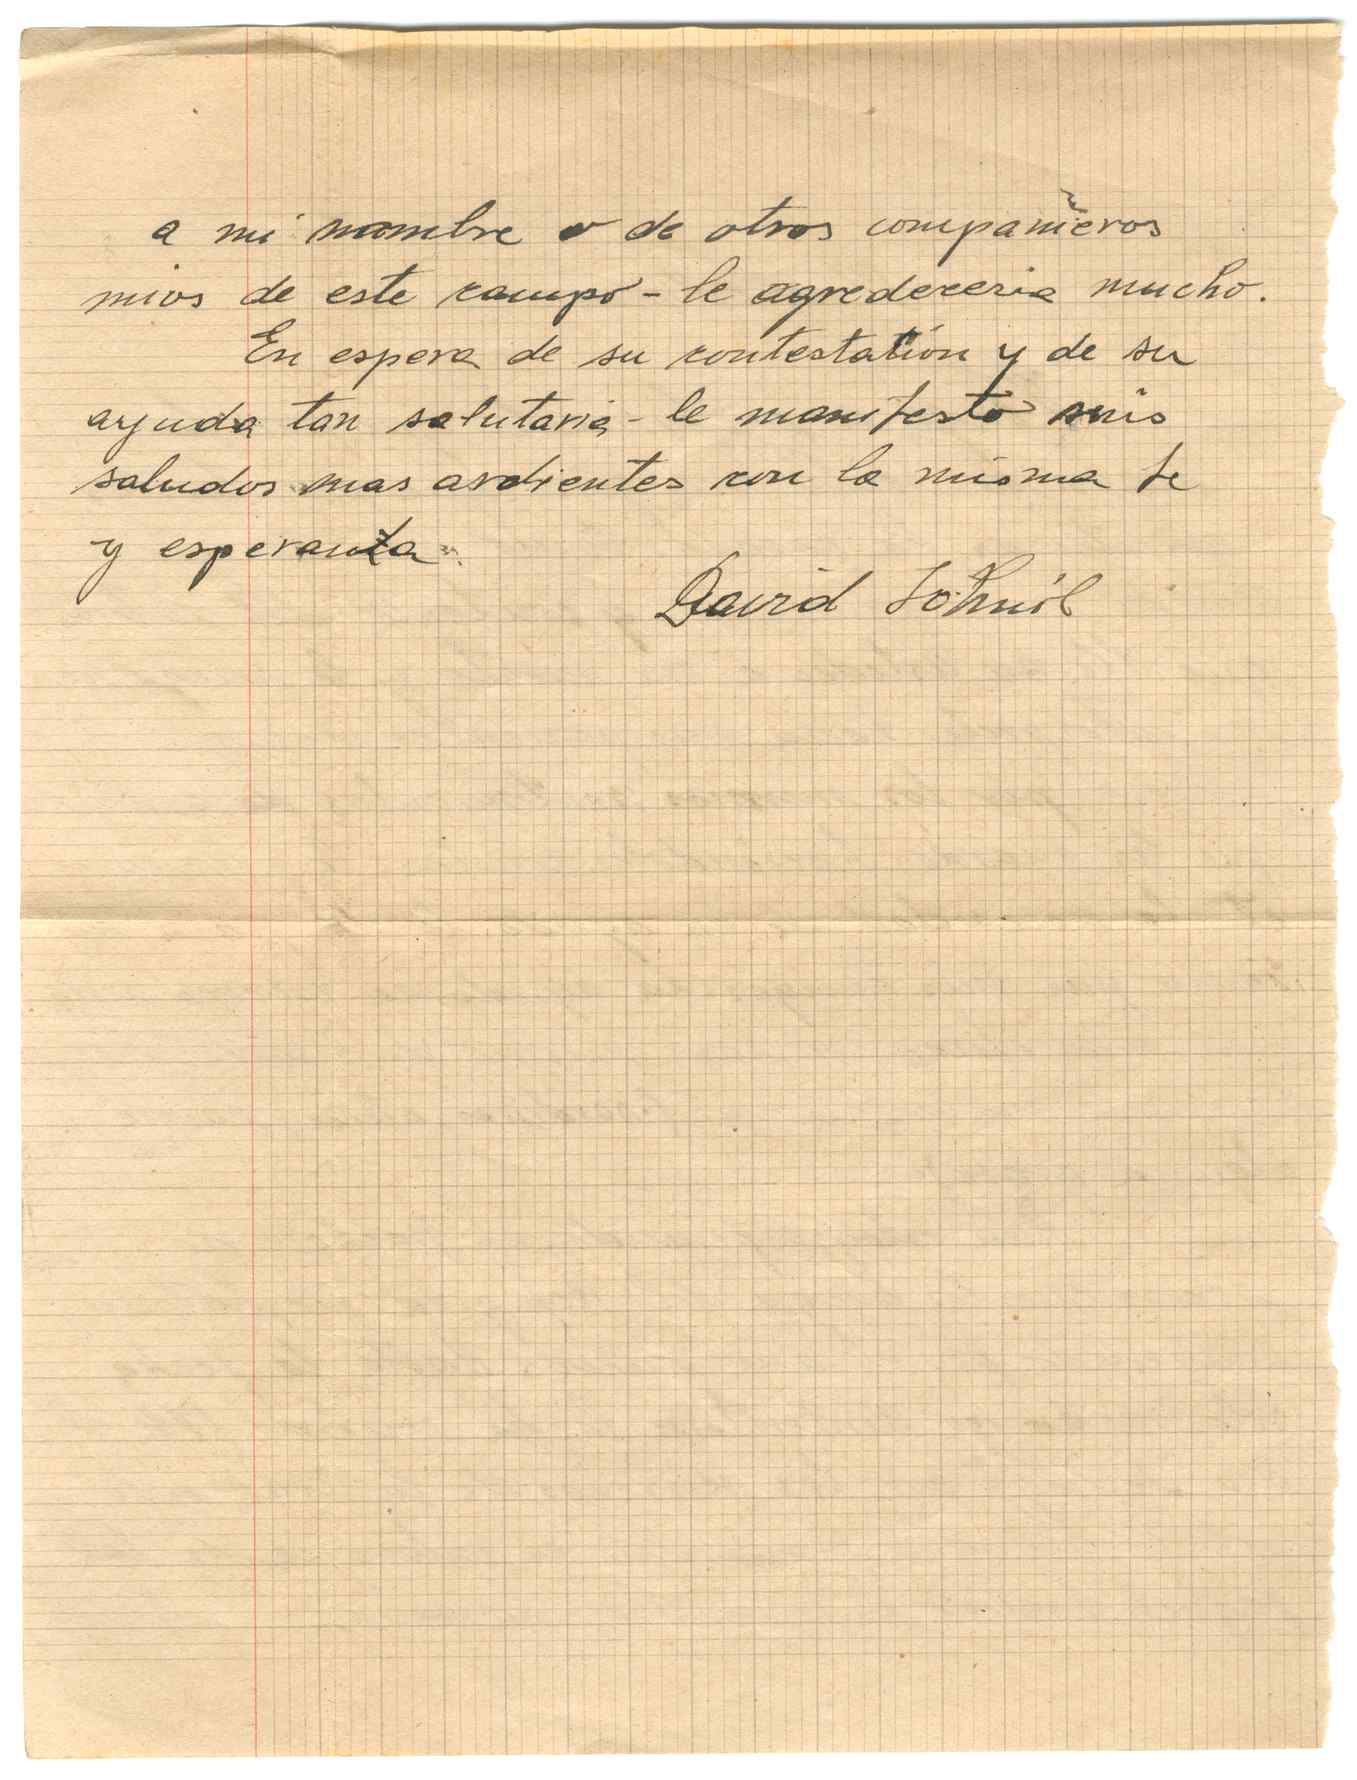 a mi nombre o de otros compañieros
mios de este campo - le agredeceria mucho.
En espera de su contestatión y de su
ayuda tan salutaria - le manifesto mis
saludos mas ardientes con la misma fe
y esperanza.
David